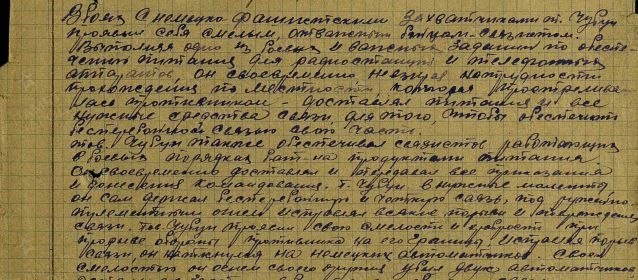 В боях с немецко-фашистскими захватчиками т. Чубун
проявил себя смелым, отважным бойцом-связистом.
Выполняя одно из боевых и важных заданий по обеспе-
чению питания для радиостанции и телефонных
аппаратов, он своевременно, невзирая на трудности
прохождения по местности, которая простреливе-
лась противником - доставлял питания и все
нужные средства связи, для того, чтобы обеспечить
бесперебойной связью свою часть.
тов. Чубун также обеспечивал связистов работающих
в боевых порядках бат-на продуктами питания.
Своевременно доставлял и передавал все приказания
и донесения командования. т. Чубун в нужные моменты
он сам держал бесперебойную и четкую связь, под ружейно-
пулеметным огнем исправлял всякие порывы и повреждения
связи. Тов. Чубун проявил свою смелость и храбрость при
прорыве обороны противника на его границе, исправляя порыв
связи, он наткнулся на немецких автоматчиков. Своей
смелостью он огнем своего оружия убил двух автоматчиков